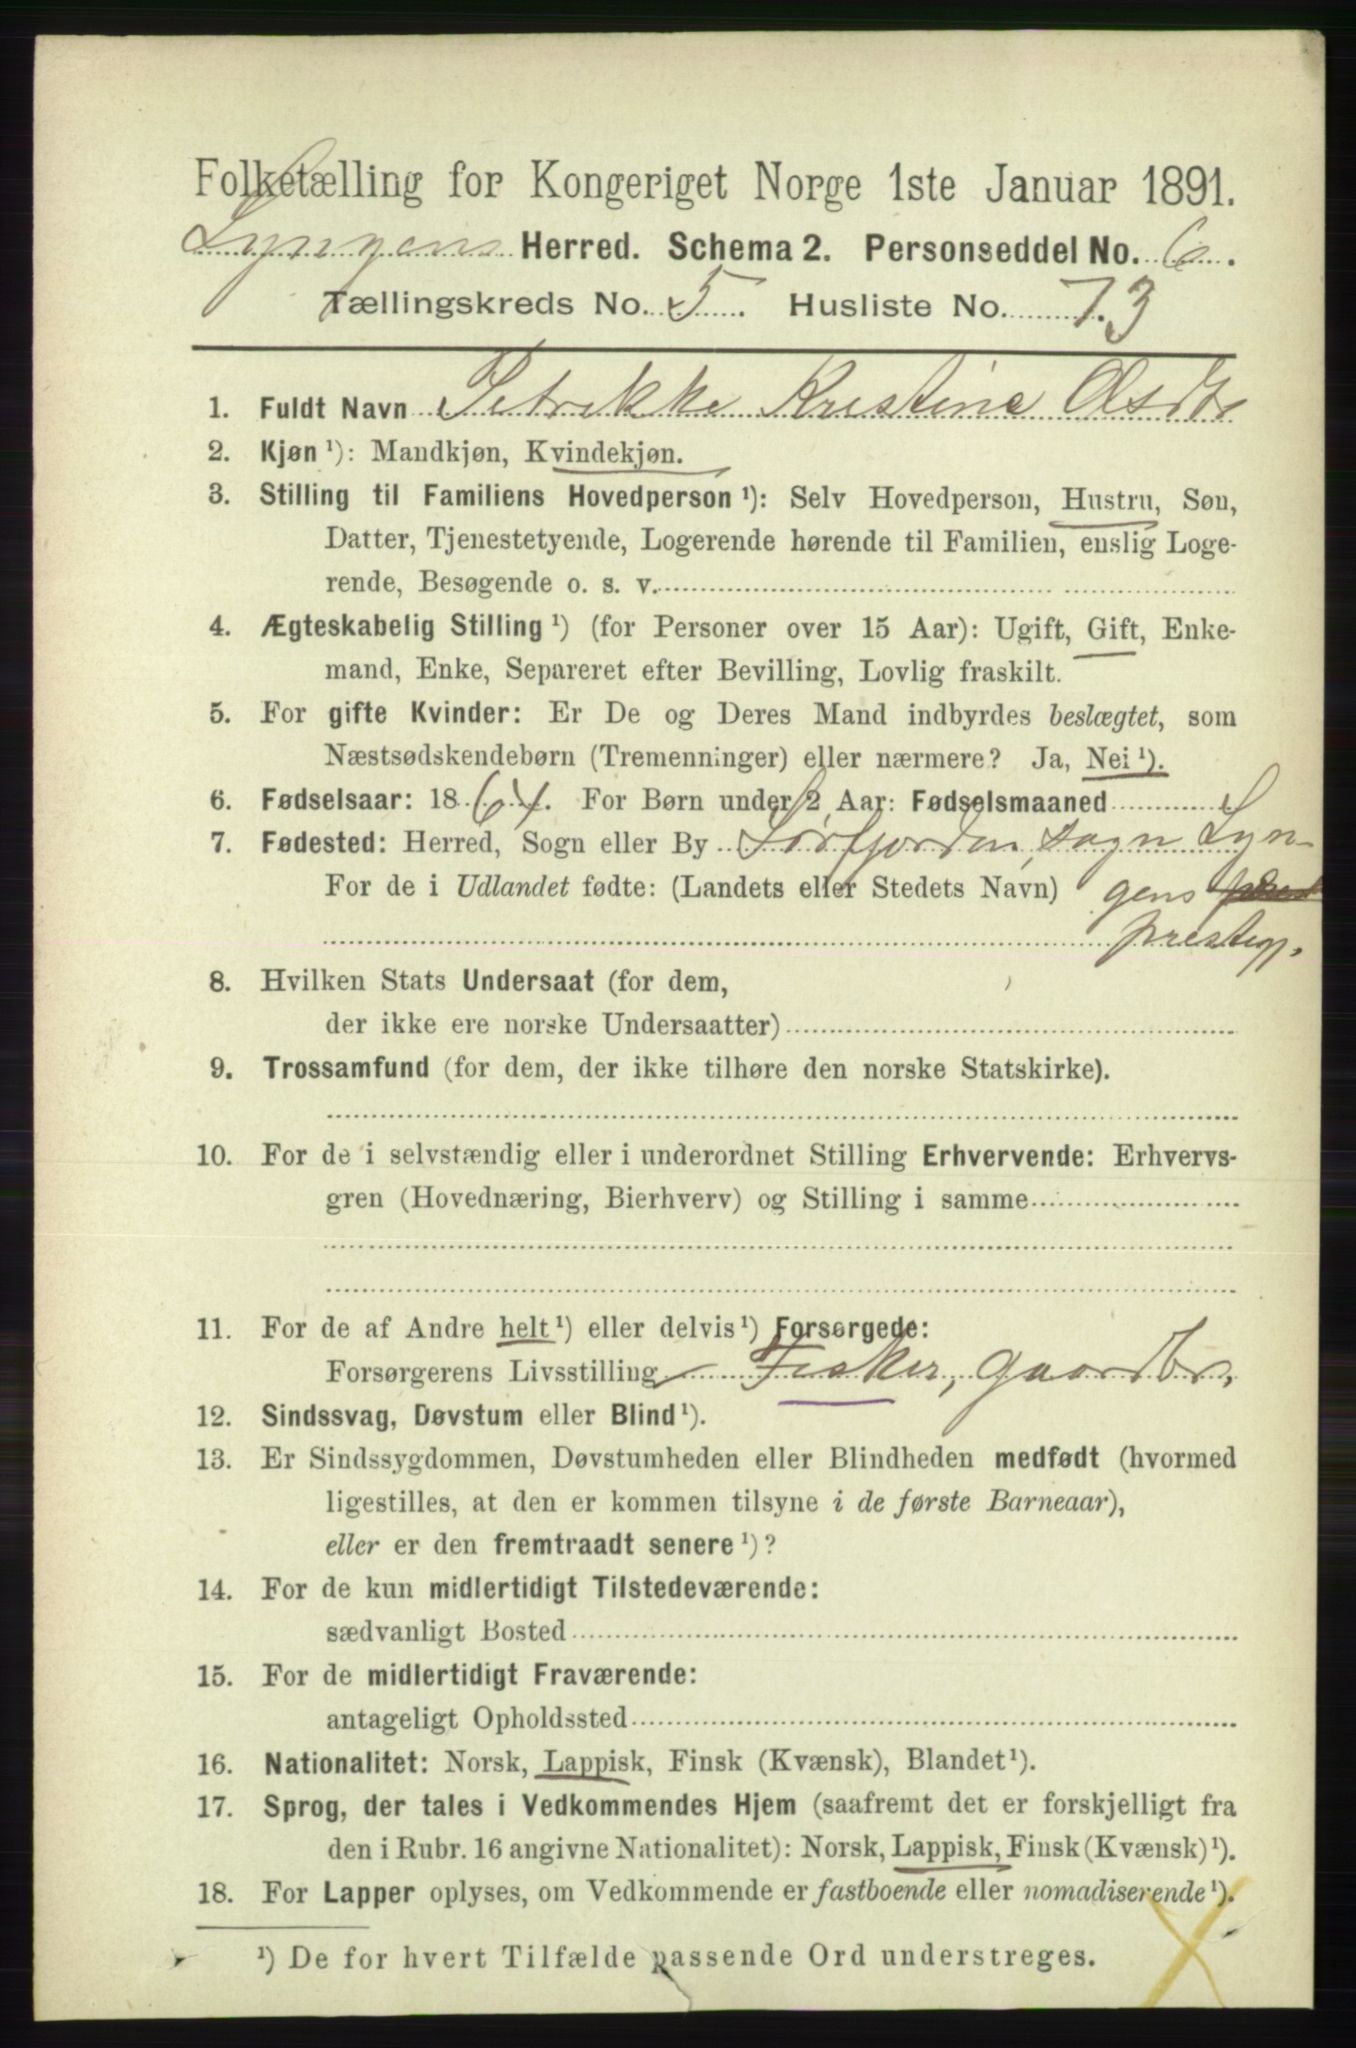 Folketælling for Kongeriget Norge 1ste Januar 1891.
Lyngens Herred. Schema 2. Personseddel No. 6.
Tællingskreds No. 5. Husliste No. 73
1. Fuldt Navn Petrikke Kristine
2. Kjøn ¹): Mandkjøn, Kvindekjøn.
3. Stilling til Familiens Hovedperson ¹): Selv Hovedperson, Hustru, Søn,
Datter, Tjenestetyende, Logerende hørende til Familien, enslig Loge-
rende, Besøgende o. s. v.
4. Ægteskabelig Stilling ¹) (for Personer over 15 Aar): Ugift, Gift, Enke-
mand, Enke, Separeret efter Bevilling, Lovlig fraskilt.
5. For gifte Kvinder: Er De og Deres Mand indbyrdes beslægtet, som
Næstsødskendebørn (Tremenninger) eller nærmere? Ja, Nei ¹).
6. Fødselsaar: 1864. For Børn under 2 Aar: Fødselsmaaned
7. Fødested: Herred, Sogn eller By Sørfjorden, sogn Lyn-
For de i Udlandet fødte: (Landets eller Stedets Navn) gens
prestegj.
8. Hvilken Stats Undersaat (for dem,
der ikke ere norske Undersaatter)
9. Trossamfund (for dem, der ikke tilhøre den norske Statskirke).
10. For de i selvstændig eller i underordnet Stilling Erhvervende: Erhvervs-
gren (Hovednæring, Bierhverv) og Stilling i samme
11. For de af Andre helt ¹) eller delvis ¹) Forsørgede:
Forsørgerens Livsstilling Fisker, gaardbr.
12. Sindssvag, Døvstum eller Blind ¹).
13. Er Sindssygdommen, Døvstumheden eller Blindheden medfødt (hvormed
ligestilles, at den er kommen tilsyne i de første Barneaar),
eller er den fremtraadt senere ¹)?
14. For de kun midlertidigt Tilstedeværende:
sædvanligt Bosted
15. For de midlertidigt Fraværende:
antageligt Opholdssted
16. Nationalitet: Norsk, Lappisk, Finsk (Kvænsk), Blandet ¹).
17. Sprog, der tales i Vedkommendes Hjem (saafremt det er forskjelligt fra
den i Rubr. 16 angivne Nationalitet): Norsk, Lappisk, Finsk (Kvænsk) ¹).
18. For Lapper oplyses, om Vedkommende er fastboende eller nomadiserende ¹).
¹) De for hvert Tilfælde passende Ord understreges.